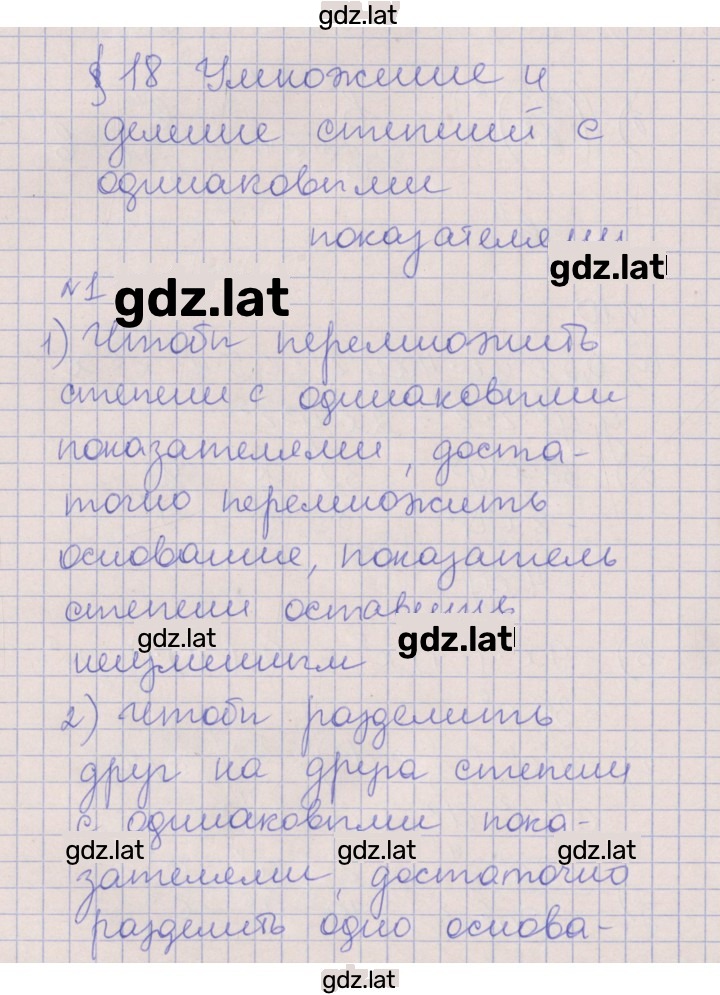 gdz.lat
§ 18 Умножение и
деление степеней с
одинаковыми
показателями
gdz.lat
№1 gdz.lat
1) Чтобы перемножить
степени с одинаковыми
показателями, доста-
точно перемножить
основание, показатель
степени оставить
gdz.lat gdz.lat
неизменным
2) Чтобы разделить
друг на друга степени
с одинаковыми пока-
gdz.lat gdz.lat gdz.lat
зателями, достаточно
разделить одно основа-
gdz.lat